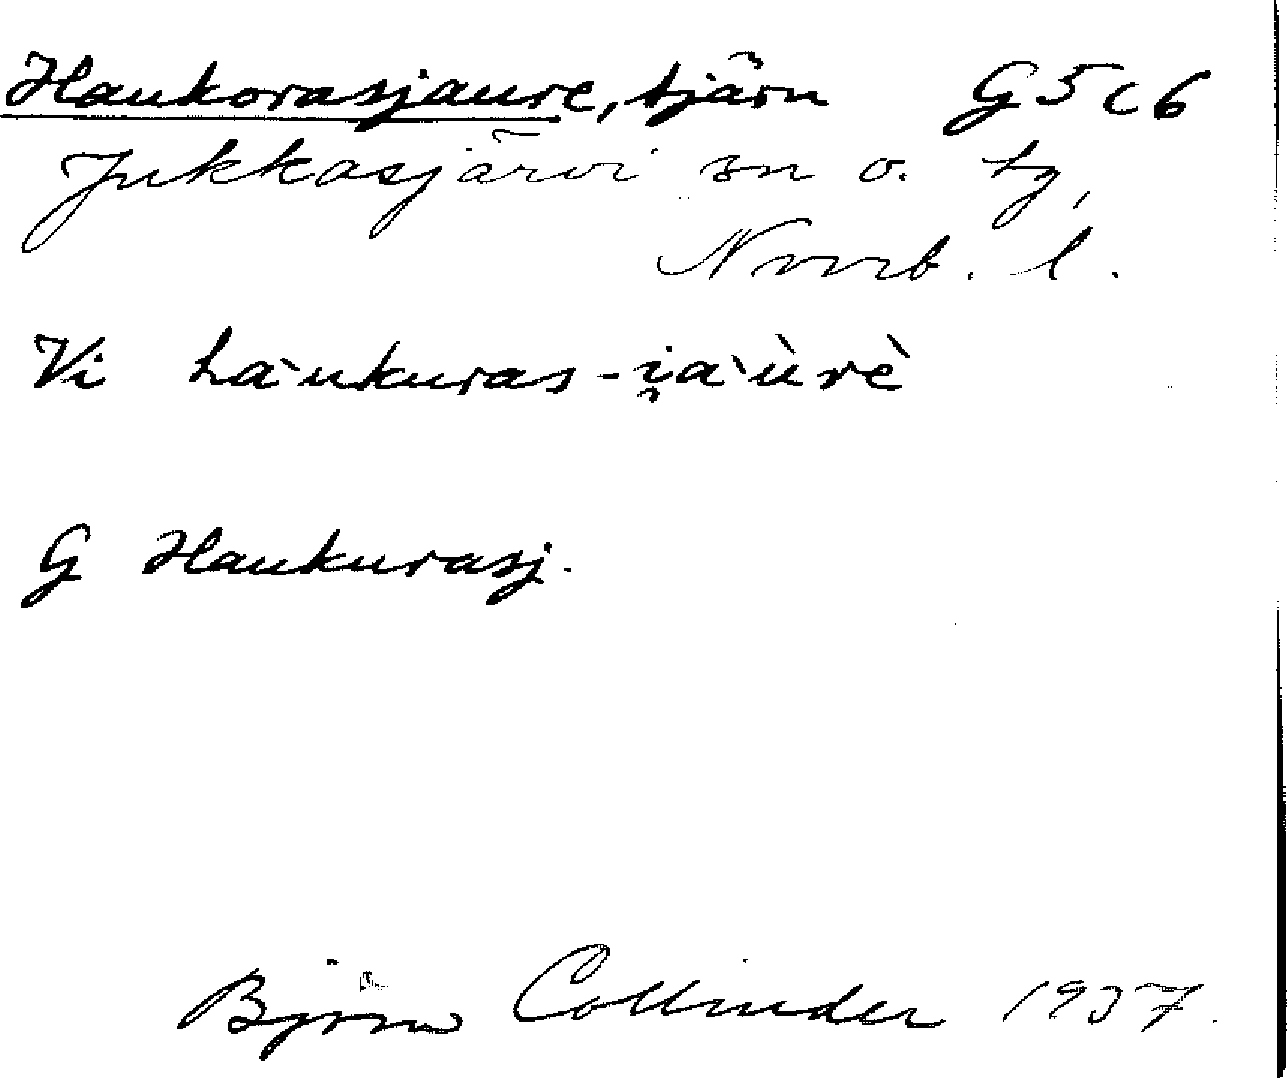 Haukorasjaure, tjärn G5c6
Jukkasjärvi sn o. tg,
Norrb. l.
Vi hàukuras-i̯àùrè
G Haukurasj.
Björn Collinder 1937.